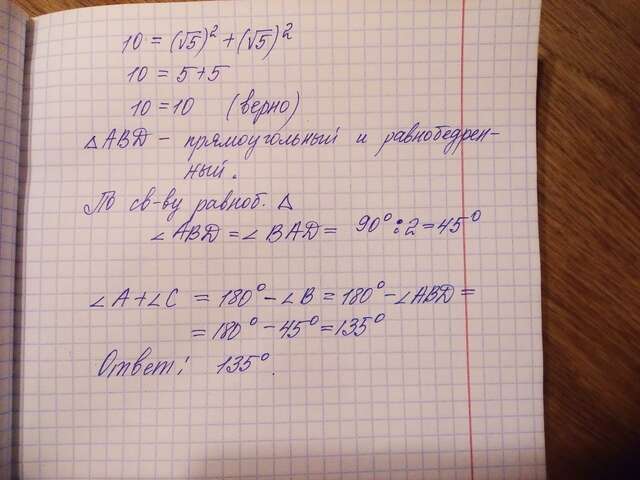 10 = (√5)² + (√5)²
10 = 5+5
10 = 10 (верно)
△ABD – прямоугольный и равнобедрен-
ный.
По св-ву равноб. △
∠ABD = ∠BAD = 90° : 2 = 45°
∠A + ∠C = 180° – ∠B = 180° – ∠ABD =
= 180° – 45° = 135°
Ответ: 135°.